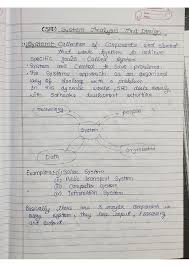 (SAD) System Analysis And Design
System: Collection of Components and
that work together to achieve
Specific goals called System
System are Created to Solve problems.
The Systems approach as an organized
way of dealing with a problem
In this dynamic world, SAD deals
with Software development activities
Technology
People
System
Data
Organization
Examples: Solar System
Public transport System
Computer System
Information System
Basically there are 3 Components in
every System, they are input, Processing
and output